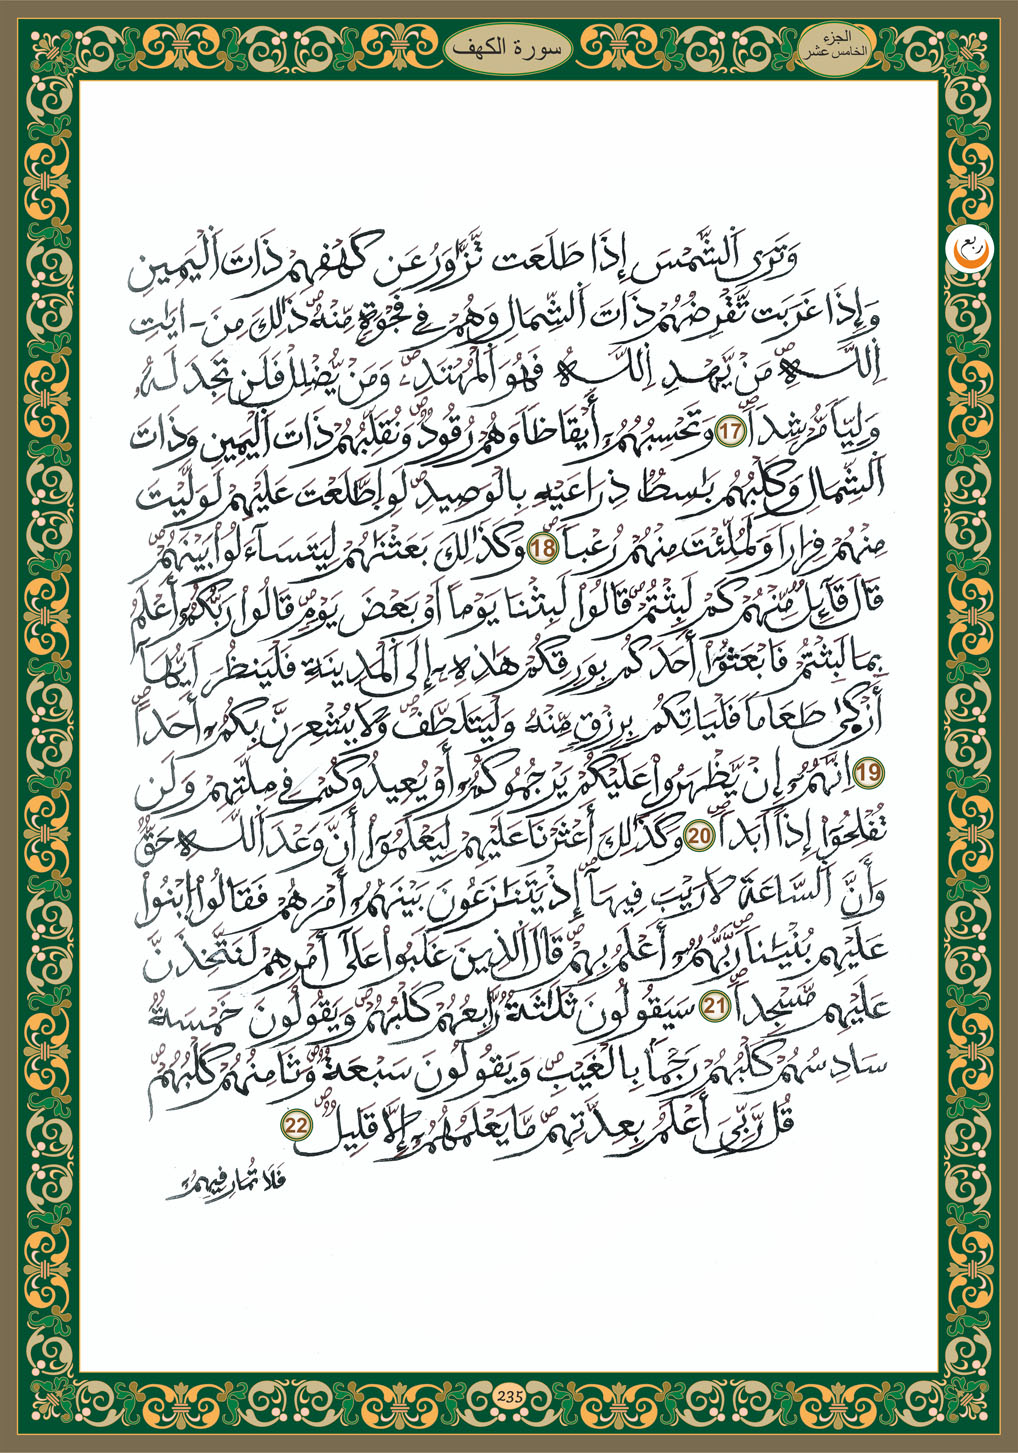 سورة الكهف
الجزء
الخامس عشر
ربع
وَتَرَى اَلشَّمْسَ إِذَا طَلَعَت تَّزَّاوَرُ عَن كَهْفِهِمْ ذَاتَ اَلْيَمِينِ
وَإِذَا غَرَبَت تَّقْرِضُهُمْ ذَاتَ اَلشِّمَالِ وَهُمْ فِي فَجْوَةٖ مِّنْهُ ذَٰلِكَ مِنَ ـ ايَٰتِ
اِللَّهِ مَنْ يَّهْدِ اِللَّهُ فَهُوَ اَلْمُهْتَدِ وَمَنْ يُّضْلِلْ فَلَن تَجِدَ لَهُۥ
وَلِيّاٗ مُّرْشِداٗ 17 وَتَحْسِبُهُمُۥ أَيْقَاظاٗ وَهُمْ رُقُودٞ وَنُقَلِّبُهُمْ ذَاتَ اَلْيَمِينِ وَذَاتَ
اَلشِّمَالِ وَكَلْبُهُم بَٰسِطٞ ذِرَاعَيْهِ بِالْوَصِيدِ لَوِ اِطَّلَعْتَ عَلَيْهِمْ لَوَلَّيْتَ
مِنْهُمْ فِرَاراٗ وَلَمُلِّئْتَ مِنْهُمْ رُعْباٗ 18 وَكَذَٰلِكَ بَعَثْنَٰهُمْ لِيَتَسَآءَلُواْ بَيْنَهُمْ
قَالَ قَآئِلٞ مِّنْهُمْ كَمْ لَبِثْتُمْ قَالُواْ لَبِثْنَا يَوْماً اَوْ بَعْضَ يَوْمٖ قَالُواْ رَبُّكُمُۥ أَعْلَمُ
بِمَا لَبِثْتُمْ فَابْعَثُوٓاْ أَحَدَكُم بِوَرِقِكُمْ هَٰذِهِۦٓ إِلَى اَلْمَدِينَةِ فَلْيَنظُرَ اَيُّهَآ
أَزْكَىٰ طَعَاماٗ فَلْيَاتِكُم بِرِزْقٖ مِّنْهُ وَلْيَتَلَطَّفْ وَلَا يُشْعِرَنَّ بِكُمُۥ أَحَداً
19 اِنَّهُمُۥ إِنْ يَّظْهَرُواْ عَلَيْكُمْ يَرْجُمُوكُمُۥ أَوْ يُعِيدُوكُمْ فِي مِلَّتِهِمْ وَلَن
تُفْلِحُوٓاْ إِذاً اَبَداٗ 20 وَكَذَٰلِكَ أَعْثَرْنَا عَلَيْهِمْ لِيَعْلَمُوٓاْ أَنَّ وَعْدَ اَللَّهِ حَقّٞ
وَأَنَّ اَلسَّاعَةَ لَا رَيْبَ فِيهَآ إِذْ يَتَنَٰزَعُونَ بَيْنَهُمُۥ أَمْرَهُمْ فَقَالُواْ اُبْنُواْ
عَلَيْهِم بُنْيَٰناٗ رَّبُّهُمُۥ أَعْلَمُ بِهِمْ قَالَ اَلذِينَ غَلَبُواْ عَلَىٰٓ أَمْرِهِمْ لَنَتَّخِذَنَّ
عَلَيْهِم مَّسْجِداٗ 21 سَيَقُولُونَ ثَلَٰثَةٞ رَّابِعُهُمْ كَلْبُهُمْ وَيَقُولُونَ خَمْسَةٞ
سَادِسُهُمْ كَلْبُهُمْ رَجْماَۢ بِالْغَيْبِ وَيَقُولُونَ سَبْعَةٞ وَثَامِنُهُمْ كَلْبُهُمْ
قُل رَّبِّيَ أَعْلَمُ بِعِدَّتِهِم مَّا يَعْلَمُهُمُۥٓ إِلَّا قَلِيلٞ 22
فَلَا تُمَارِ فِيهِمُۥٓ
235